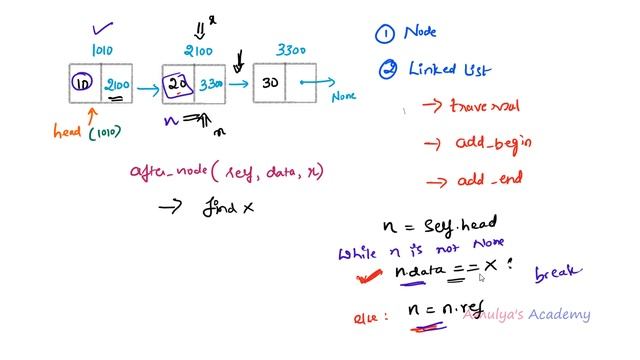 1010 2100 x 3300
10 2100 20 3300 30 None
head (1010)
n
n
after_node( self, data, x)
→ find x
① Node
② Linked List
→ traversal
→ add_begin
→ add_end
n = self.head
while n is not None
n.data == x : break
else: n = n.ref
Amulya's Academy